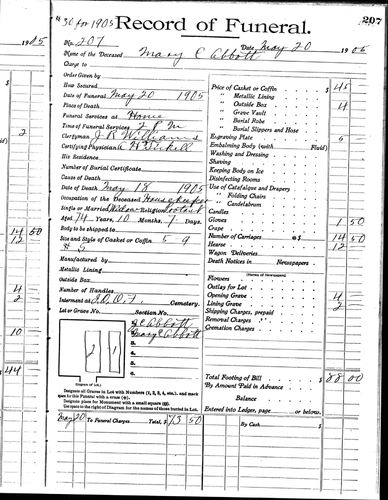 "30 for 1905
Record of Funeral.
207
No. 207
Date May 20 1905
Name of the Deceased Mary E Abbott
Charge to
Order Given by
How Secured
Date of Funeral May 20 1905
Place of Death
Funeral Services at Home
Time of Funeral Services 2 P M
Clergyman J R Williams
Certifying Physician
His Residence
Number of Burial Certificate
Cause of Death
Date of Death May 18 1905
Occupation of the Deceased Housekeeper
Single or Married Widow Religion
Aged 74 Years, 10 Months, 7 Days.
Body to be shipped to
Size and Style of Casket or Coffin 5 9
Manufactured by
Metallic Lining
Outside Box
Number of Handles
Interment at I.O.O.F. Cemetery.
Lot or Grave No. Section No.
Abbott
Mary E Abbott
2 1
(Diagram of Lot.)
Designate all Graves in Lot with Numbers (1, 2, 3, 4, etc.), and mark
space for this Funeral with a cross (+).
Designate place for Monument with a small square (□).
Use space to the right of Diagram for the names of those buried in Lot.
May 20 To Funeral Charges Total, $ 73 50
Price of Casket or Coffin $ 45
" Metallic Lining
" Outside Box 4
" Grave Vault
" Burial Robe
" Burial Slippers and Hose
Engraving Plate
Embalming Body (with Fluid)
Washing and Dressing
Shaving
Keeping Body on Ice
Disinfecting Rooms
Use of Catafalque and Drapery
" Folding Chairs
" Candelabrum
Candles
Gloves 1 50
Crape
Number of Carriages @ $ 14 50
Hearse 12
Wagon Deliveries
Death Notices in Newspapers
(Names of Newspapers)
Flowers
Outlay for Lot
Opening Grave 4
Lining Grave 2
Shipping Charges, prepaid
Removal Charges
Cremation Charges
Total Footing of Bill $ 88 00
By Amount Paid in Advance
Balance
Entered into Ledger, page or below.
By Cash $